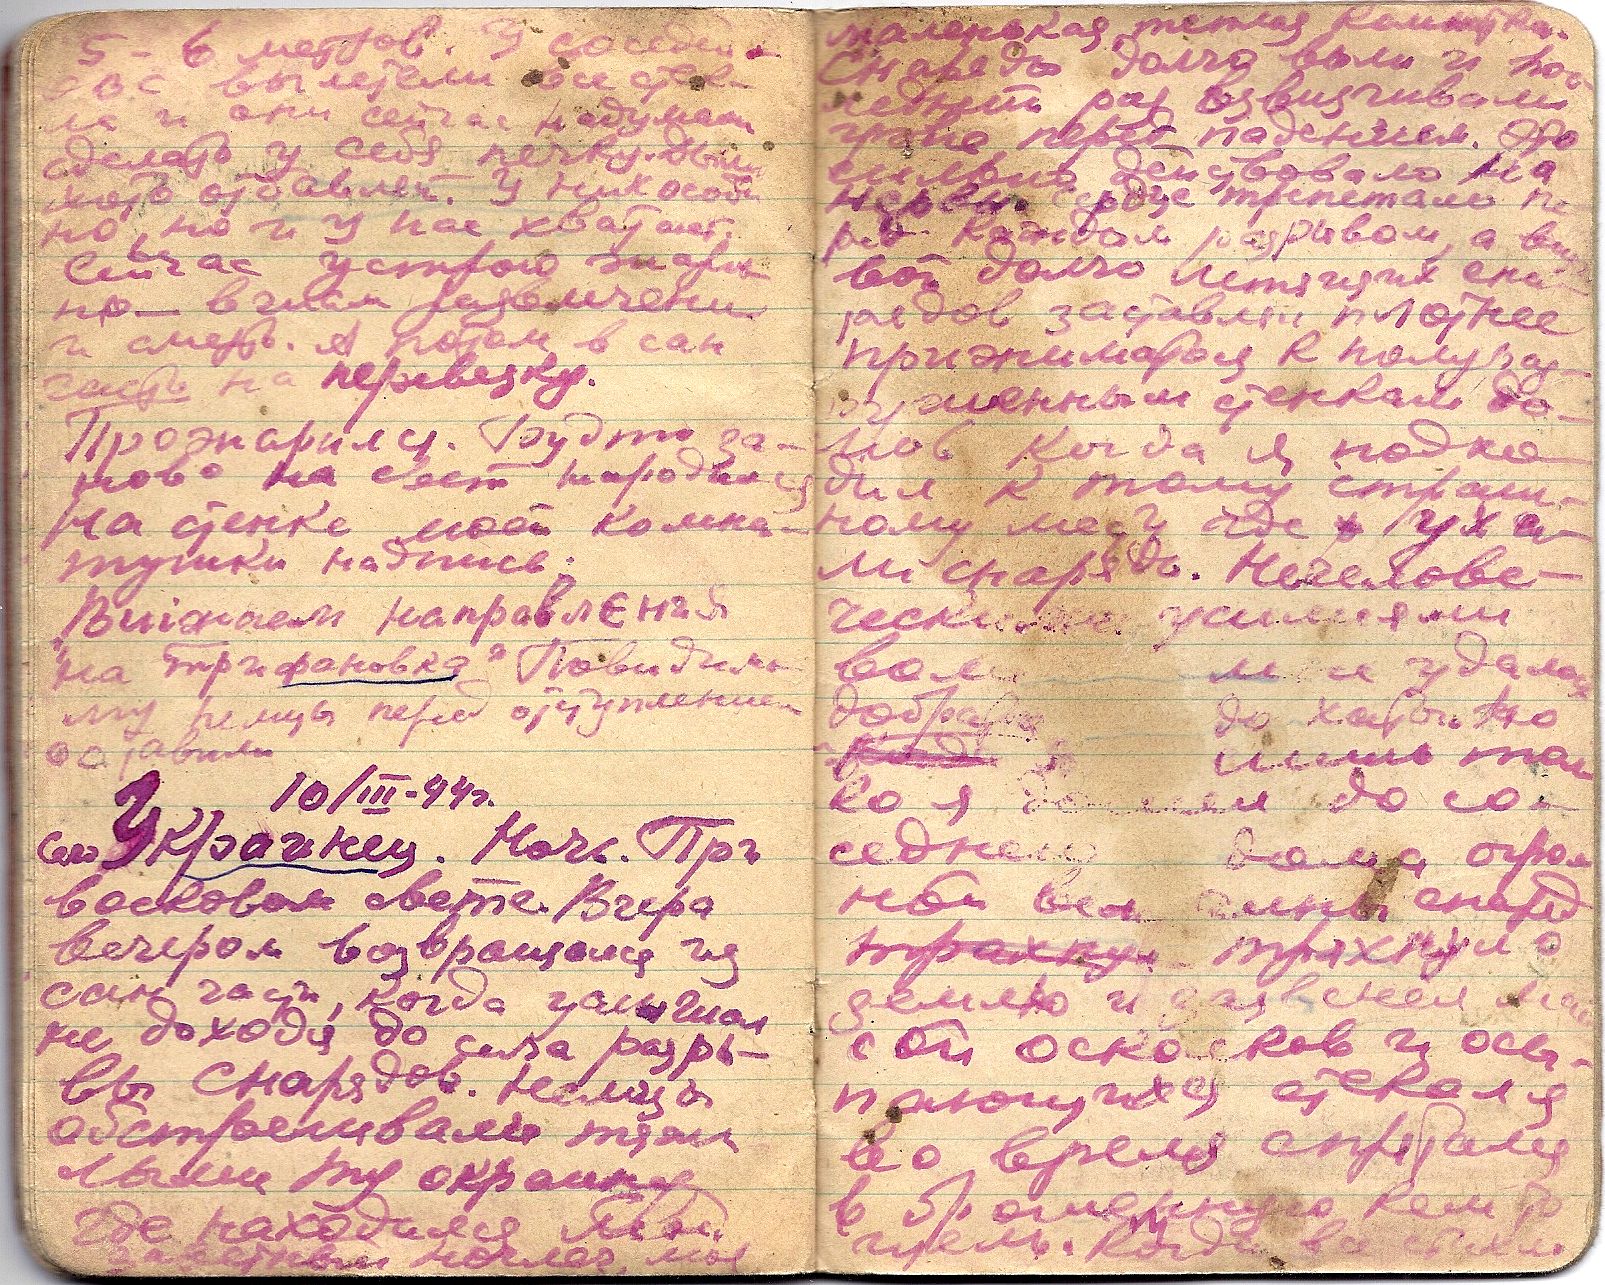 5-6 метров. У соседей
вылетели все стек-
ла и они сейчас надумали
сделать у себя печку. Дым
У них особен
но, но и у нас хватает.
Сейчас устрою жарку
и смерть. А потом в сан
часть на перевязку.
Прожарился. Будто за-
ново на свет народился
На стенке моей комна-
тушки надпись:
"Виижаем направлЕния
на Трифановка" Повидимо
му немцы перед отступлением
оставили
10/III-44г.
Село Украинец. Ночь. При
восковом свете. Вчера
вечером возвращался из
сан части, когда услышал
не доходя до села разры-
вы снарядов. Немцы
обстреливали тяже
лыми ту окраину
где находился мой
ночлег, моя
маленькая, теплая комнатка.
Снаряды долго выли и пос
ледний раз взвизгивали
грозно перед падением. Это
сильно действовало на
нервы. Сердце трепетало пе
ред каждым разрывом, а
вой долго летящих сна
рядов заставлял плотнее
прижиматься к полураз-
рушенным стенкам до-
мов когда я подхо-
дил к тому страш-
ному месту где уха-
ли снаряды. Нечелове-
ческими усилиями
воли мне удалось
добраться до хаты. Но
лишь толь
ко я до со-
седнего дома огром
ной величины снаряд
тряхнуло
землю и
сой осколков и осы-
пающихся стекол я
во время спрятался
в брошенную кем то
щель. Когда все стихло